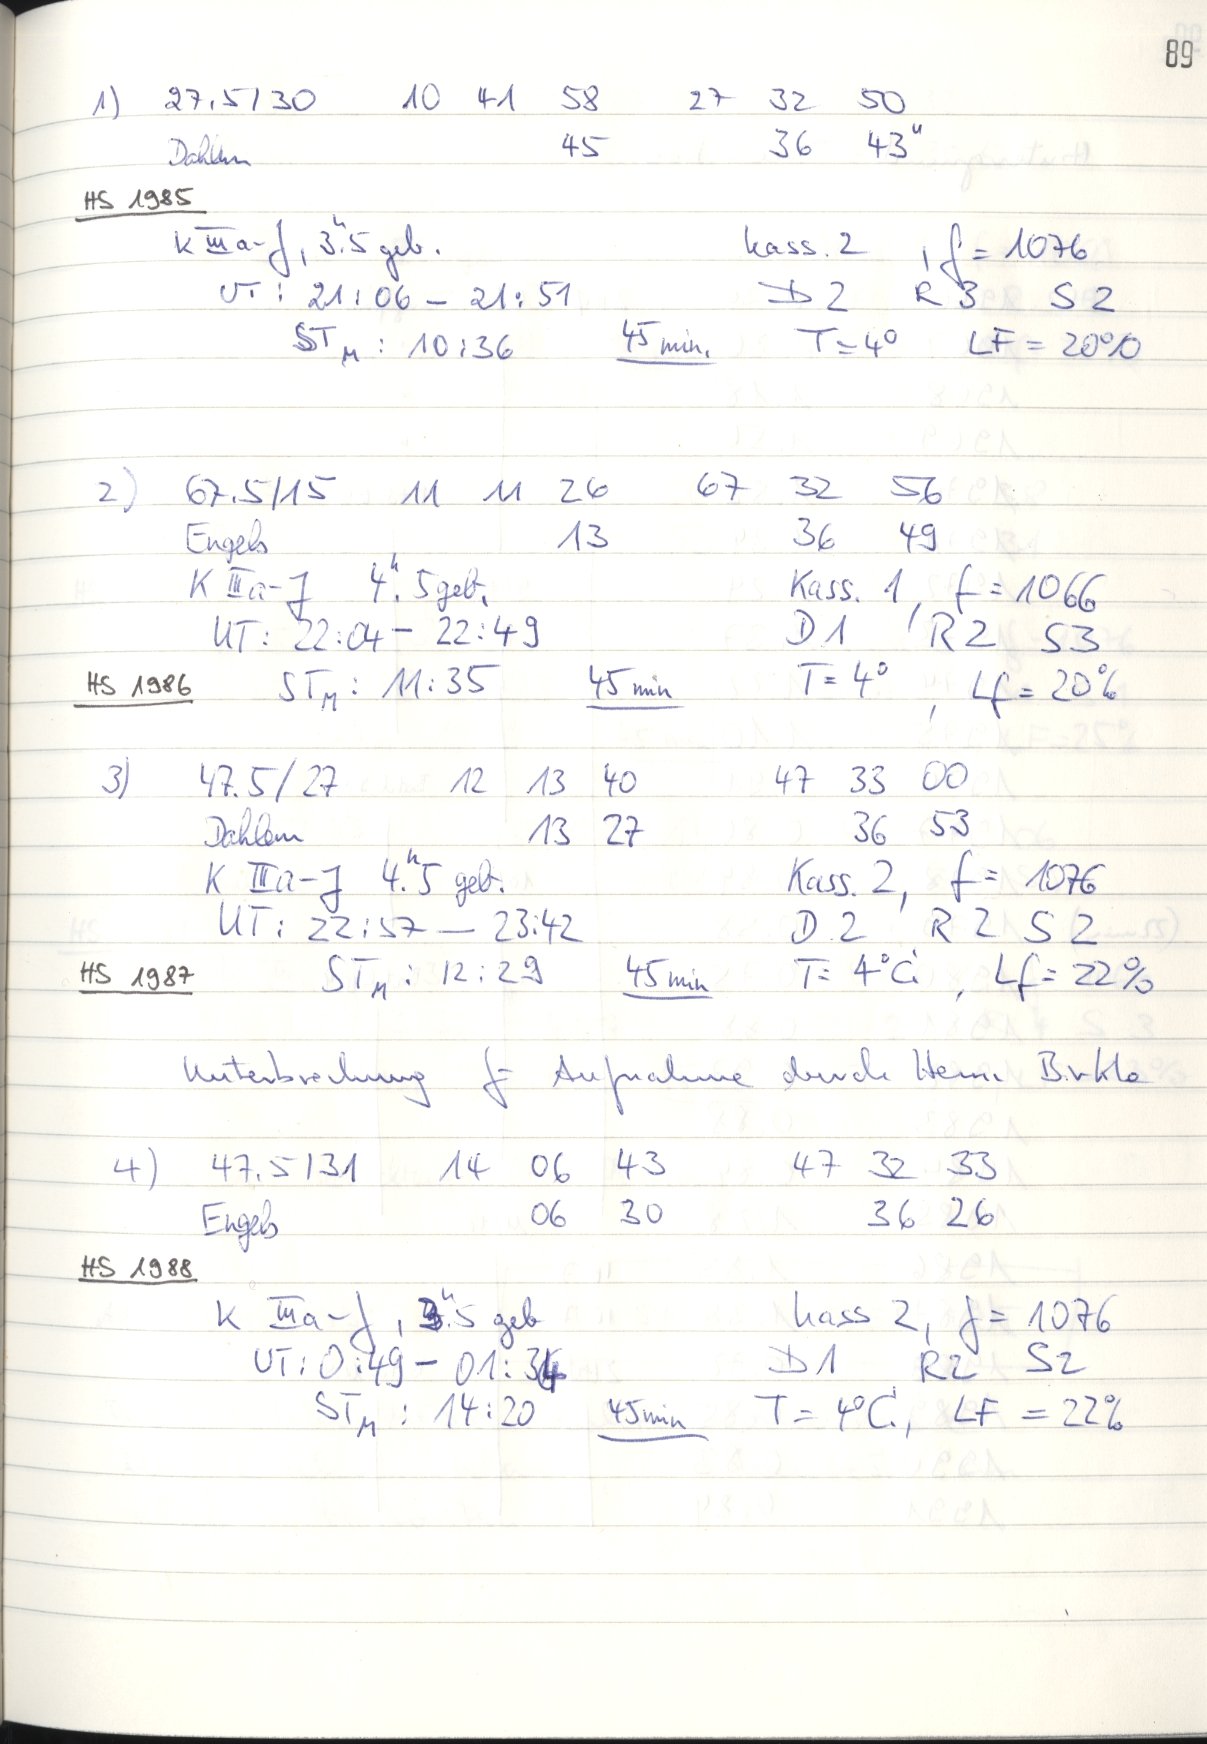 89
1) 27.5/30 10 41 58 27 32 50
Dahlem 45 36 43"
HS 1985
K IIIa-J, 3.h5 geb. Kass. 2, f = 1076
UT: 21:06 – 21:51 D2 R3 S2
STM: 10:36 45 min. T=4° LF = 20%
2) 67.5/15 11 11 26 67 32 56
Engels 13 36 49
K IIIa-J 4.h5 geb. Kass. 1, f = 1066
UT: 22:04 – 22:49 D1 R2 S3
HS 1986 STM: 11:35 45 min T=4°, Lf = 20%
3) 47.5/27 12 13 40 47 33 00
Dahlem 13 27 36 53
K IIIa-J 4.h5 geb. Kass. 2, f = 1076
UT: 22:57 – 23:42 D2 R2 S2
HS 1987 STM: 12:29 45 min T=4°C, Lf = 22%
Unterbrechung f= Aufnahme durch Herrn Birkle
4) 47.5/31 14 06 43 47 32 33
Engels 06 30 36 26
HS 1988
K IIIa-J, 3.h5 geb Kass 2, f = 1076
UT: 0:49 – 01:34 D1 R2 S2
STM: 14:20 45 min T=4°C, LF = 22%